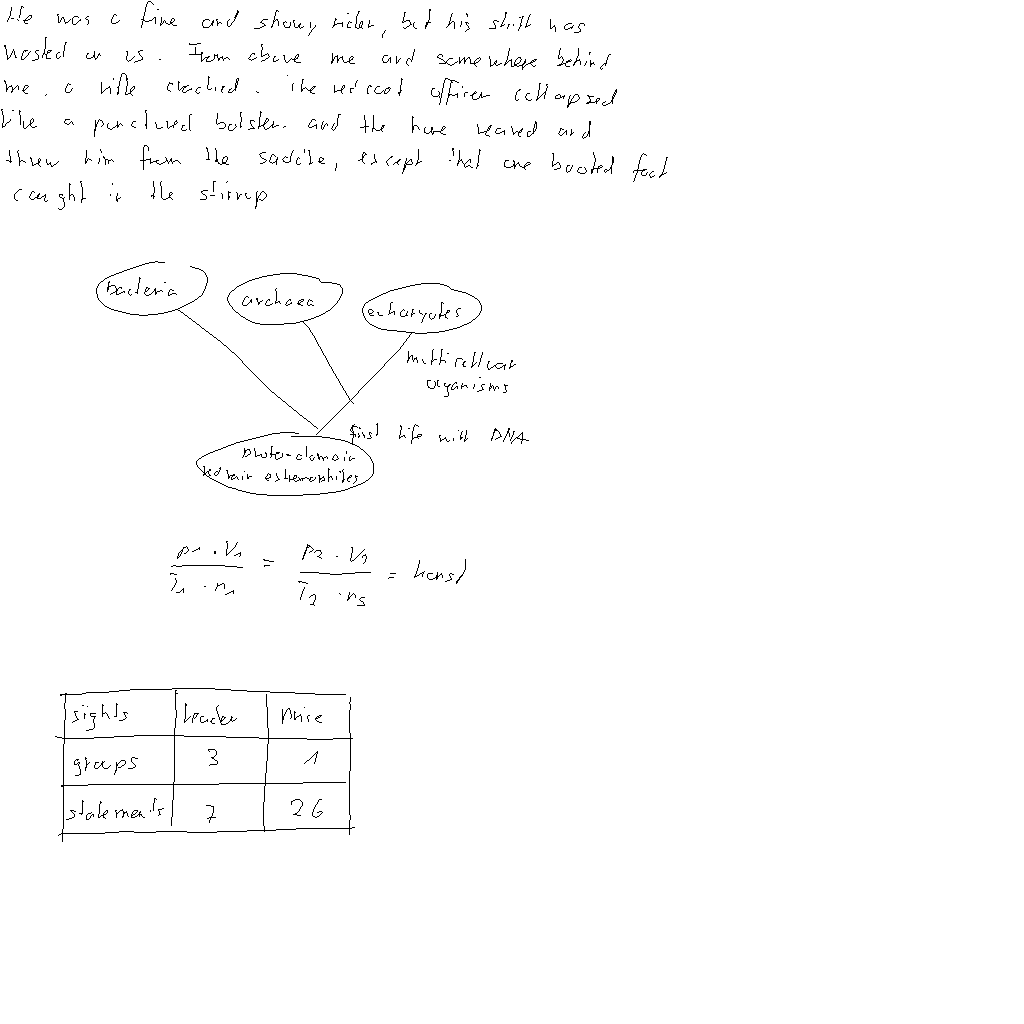 He was a fine and showy rider, but his skill was
wasted on us. From above me and somewhere behind
me, a rifle cracked. The redcoat officer collapsed
like a punctured bolster. and the horse reared and
threw him from the saddle, except that one booted foot
caught in the stirrup
bacteria archaea eukaryotes
multicelluar
organisms
first life with DNA
proto-domain
extremophiles
p1 · V1 / T1 · n1 = p2 · V2 / T2 · n2 = konst
sights leader price
groups 3 1
statements 7 26